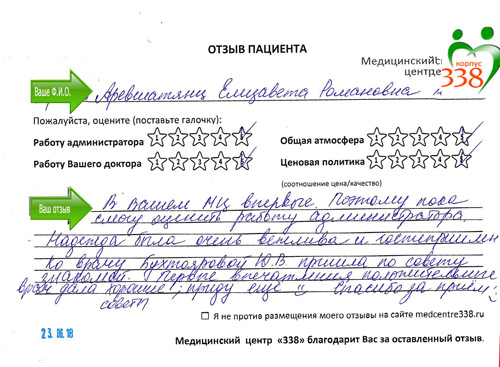 ОТЗЫВ ПАЦИЕНТА
Медицинский
центр
корпус
338
Ваше Ф.И.О.
Аревшатянц Елизавета Романовна
Пожалуйста, оцените (поставьте галочку):
Работу администратора 1 2 3 4 5
Общая атмосфера 1 2 3 4 5
Работу Вашего доктора 1 2 3 4 5
Ценовая политика 1 2 3 4 5
(соотношение цена/качество)
Ваш отзыв
В Вашем МЦ впервые. Поэтому пока
смогу оценить работу администратора.
Надежда была очень вежлива и гостеприимн
Ко врачу Бухтояровой Ю.В пришла по совету
знакомой. Первые впечатления положительные
врач дала хорошие; приду еще Спасибо за приём
советы
23.06.18
Я не против размещения моего отзывы на сайте medcentre338.ru
Медицинский центр «338» благодарит Вас за оставленный отзыв.